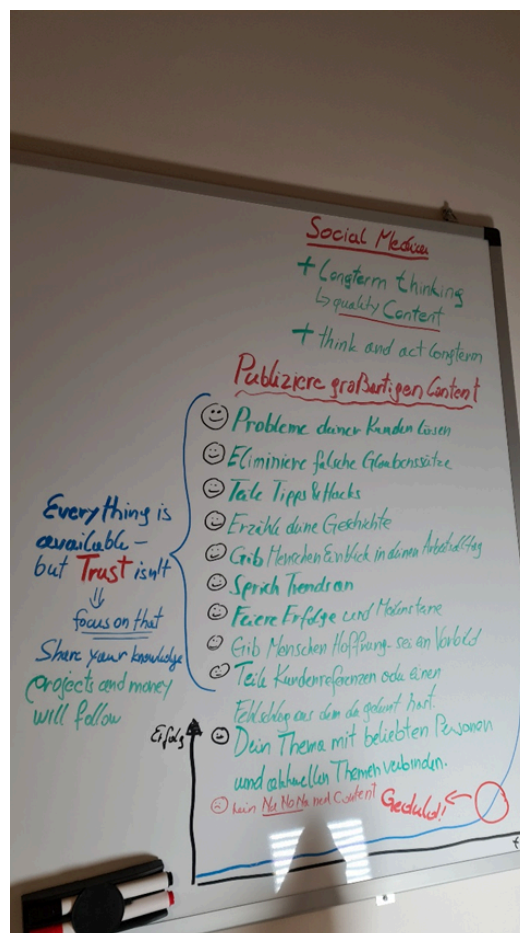 Social Medien
+ Longterm thinking
↳ quality Content
+ think and act longterm
Publiziere großartigen Content
Probleme deiner Kunden lösen
Eliminiere falsche Glaubenssätze
Teile Tipps & Hacks
Erzähle deine Geschichte
Gib Menschen Einblick in deinen Arbeitsalltag
Sprich Trends an
Feiere Erfolge und Meilensteine
Gib Menschen Hoffnung - sei ein Vorbild
Teile Kundenreferenzen oder einen
Fehlschlag aus dem du gelernt hast.
Dein Thema mit beliebten Personen
und aktuellen Themen verbinden.
kein Content
Geduld!
Everything is
available -
but Trust isn't
⇓
focus on that
Share your knowledge
projects and money
will follow
Erfolg
t